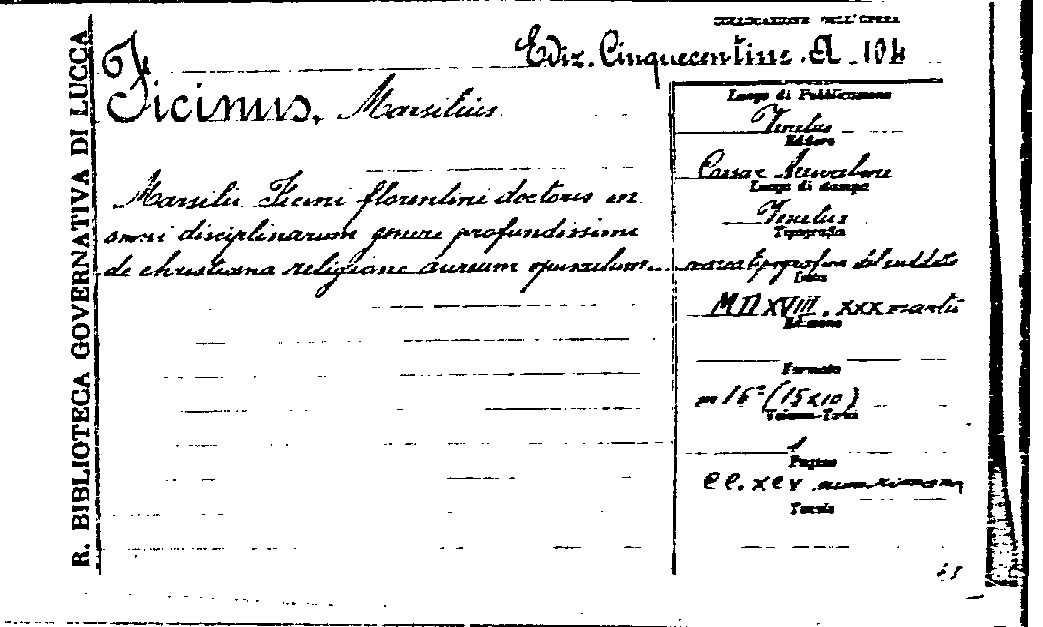 R. BIBLIOTECA GOVERNATIVA DI LUCCA
COLLOCAZIONE DELL'OPERA
Ediz. Cinquecentine. A. 104
F
Ficinus, Marsilius
Marsilii Ficini florentini doctoris in
omni disciplinarum genere profundissimi
de christiana religione aureum opusculum
Luogo di Pubblicazione
Venetus
Editore
Cesar
Luogo di stampa
Venetus
Tipografia
marca tipografica del suddetto
Data
MDXVIII. XXX martii
Edizione
Formato
in 16° (15x10)
Volume-Tomo
1
Pagine
cc. XCV
Tavole